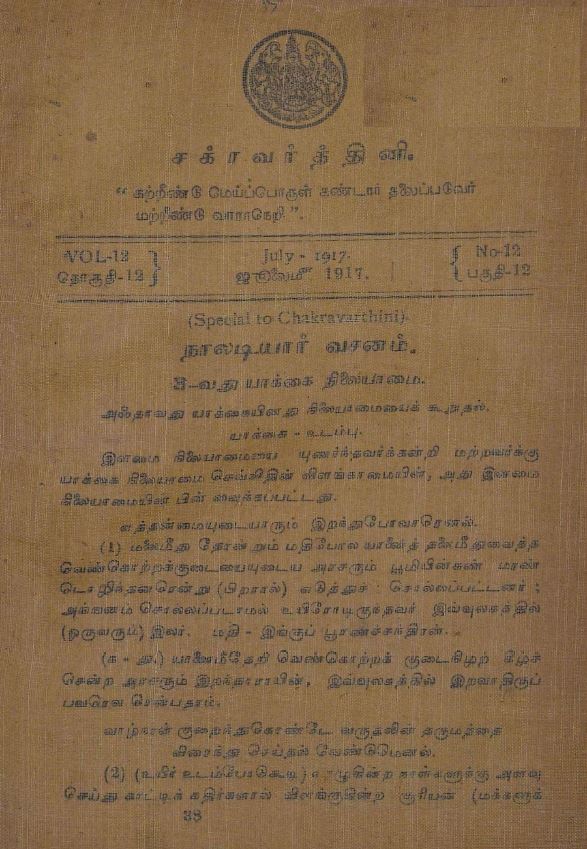 சக்ரவர்த்தினி.
“ கற்றீண்டு மெய்ப்பொருள் கண்டார் தலைப்படுவர்
மற்றீண்டு வாராநெறி ”.
VOL-12
July - 1917.
No-12
தொகுதி-12
ஜூலைமீ 1917.
பகுதி-12
(Special to Chakravarthini).
நாலடியார் வசனம்.
3-வது யாக்கை நிலையாமை.
அஃதாவது யாக்கையினது நிலையாமையைக் கூறுதல்.
யாக்கை - உடம்பு.
இளமை நிலையாமையை யுணர்ந்தவர்க்கன்றி மற்றவர்க்கு
யாக்கை நிலையாமை செவ்விதின் விளங்காமையின், அது இளமை
நிலையாமையின் பின் வைக்கப்பட்டது.
எத்தன்மையுடையாரும் இறந்துபோவாரெனல்.
(1) மலைமீது தோன்றும் மதிபோல யானைத் தலைமீதுவைத்த
வெண்கொற்றக்குடையையுடைய அரசரும் பூமியின்கண் மாண்
டொழிந்தனரென்று (பிறரால்) எடுத்துச் சொல்லப்பட்டனர் ;
அங்ஙனம் சொல்லப்படாமல் உயிரோடிருந்தவர் இவ்வுலகத்தில்
(ஒருவரும்) இலர். மதி - இங்குப் பூரணச்சந்திரன்.
(க - து.) யானைமீதேறி வெண்கொற்றக் குடைநிழற் கீழ்ச்
சென்ற அரசரும் இறந்தாராயின், இவ்வுலகத்தில் இறவாதிருப்
பவரெவ ரென்பதாம்.
வாழ்நாள் குறைந்துகொண்டே வருதலின் தருமத்தை
விரைந்து செய்தல் வேண்டுமெனல்.
(2) (உயிர் உடம்போடுகூடி) வாழுகின்ற நாள்களுக்கு அளவு
செய்து காட்டிக் கதிர்களால் விளங்குகின்ற சூரியன் (மக்களுக்
38